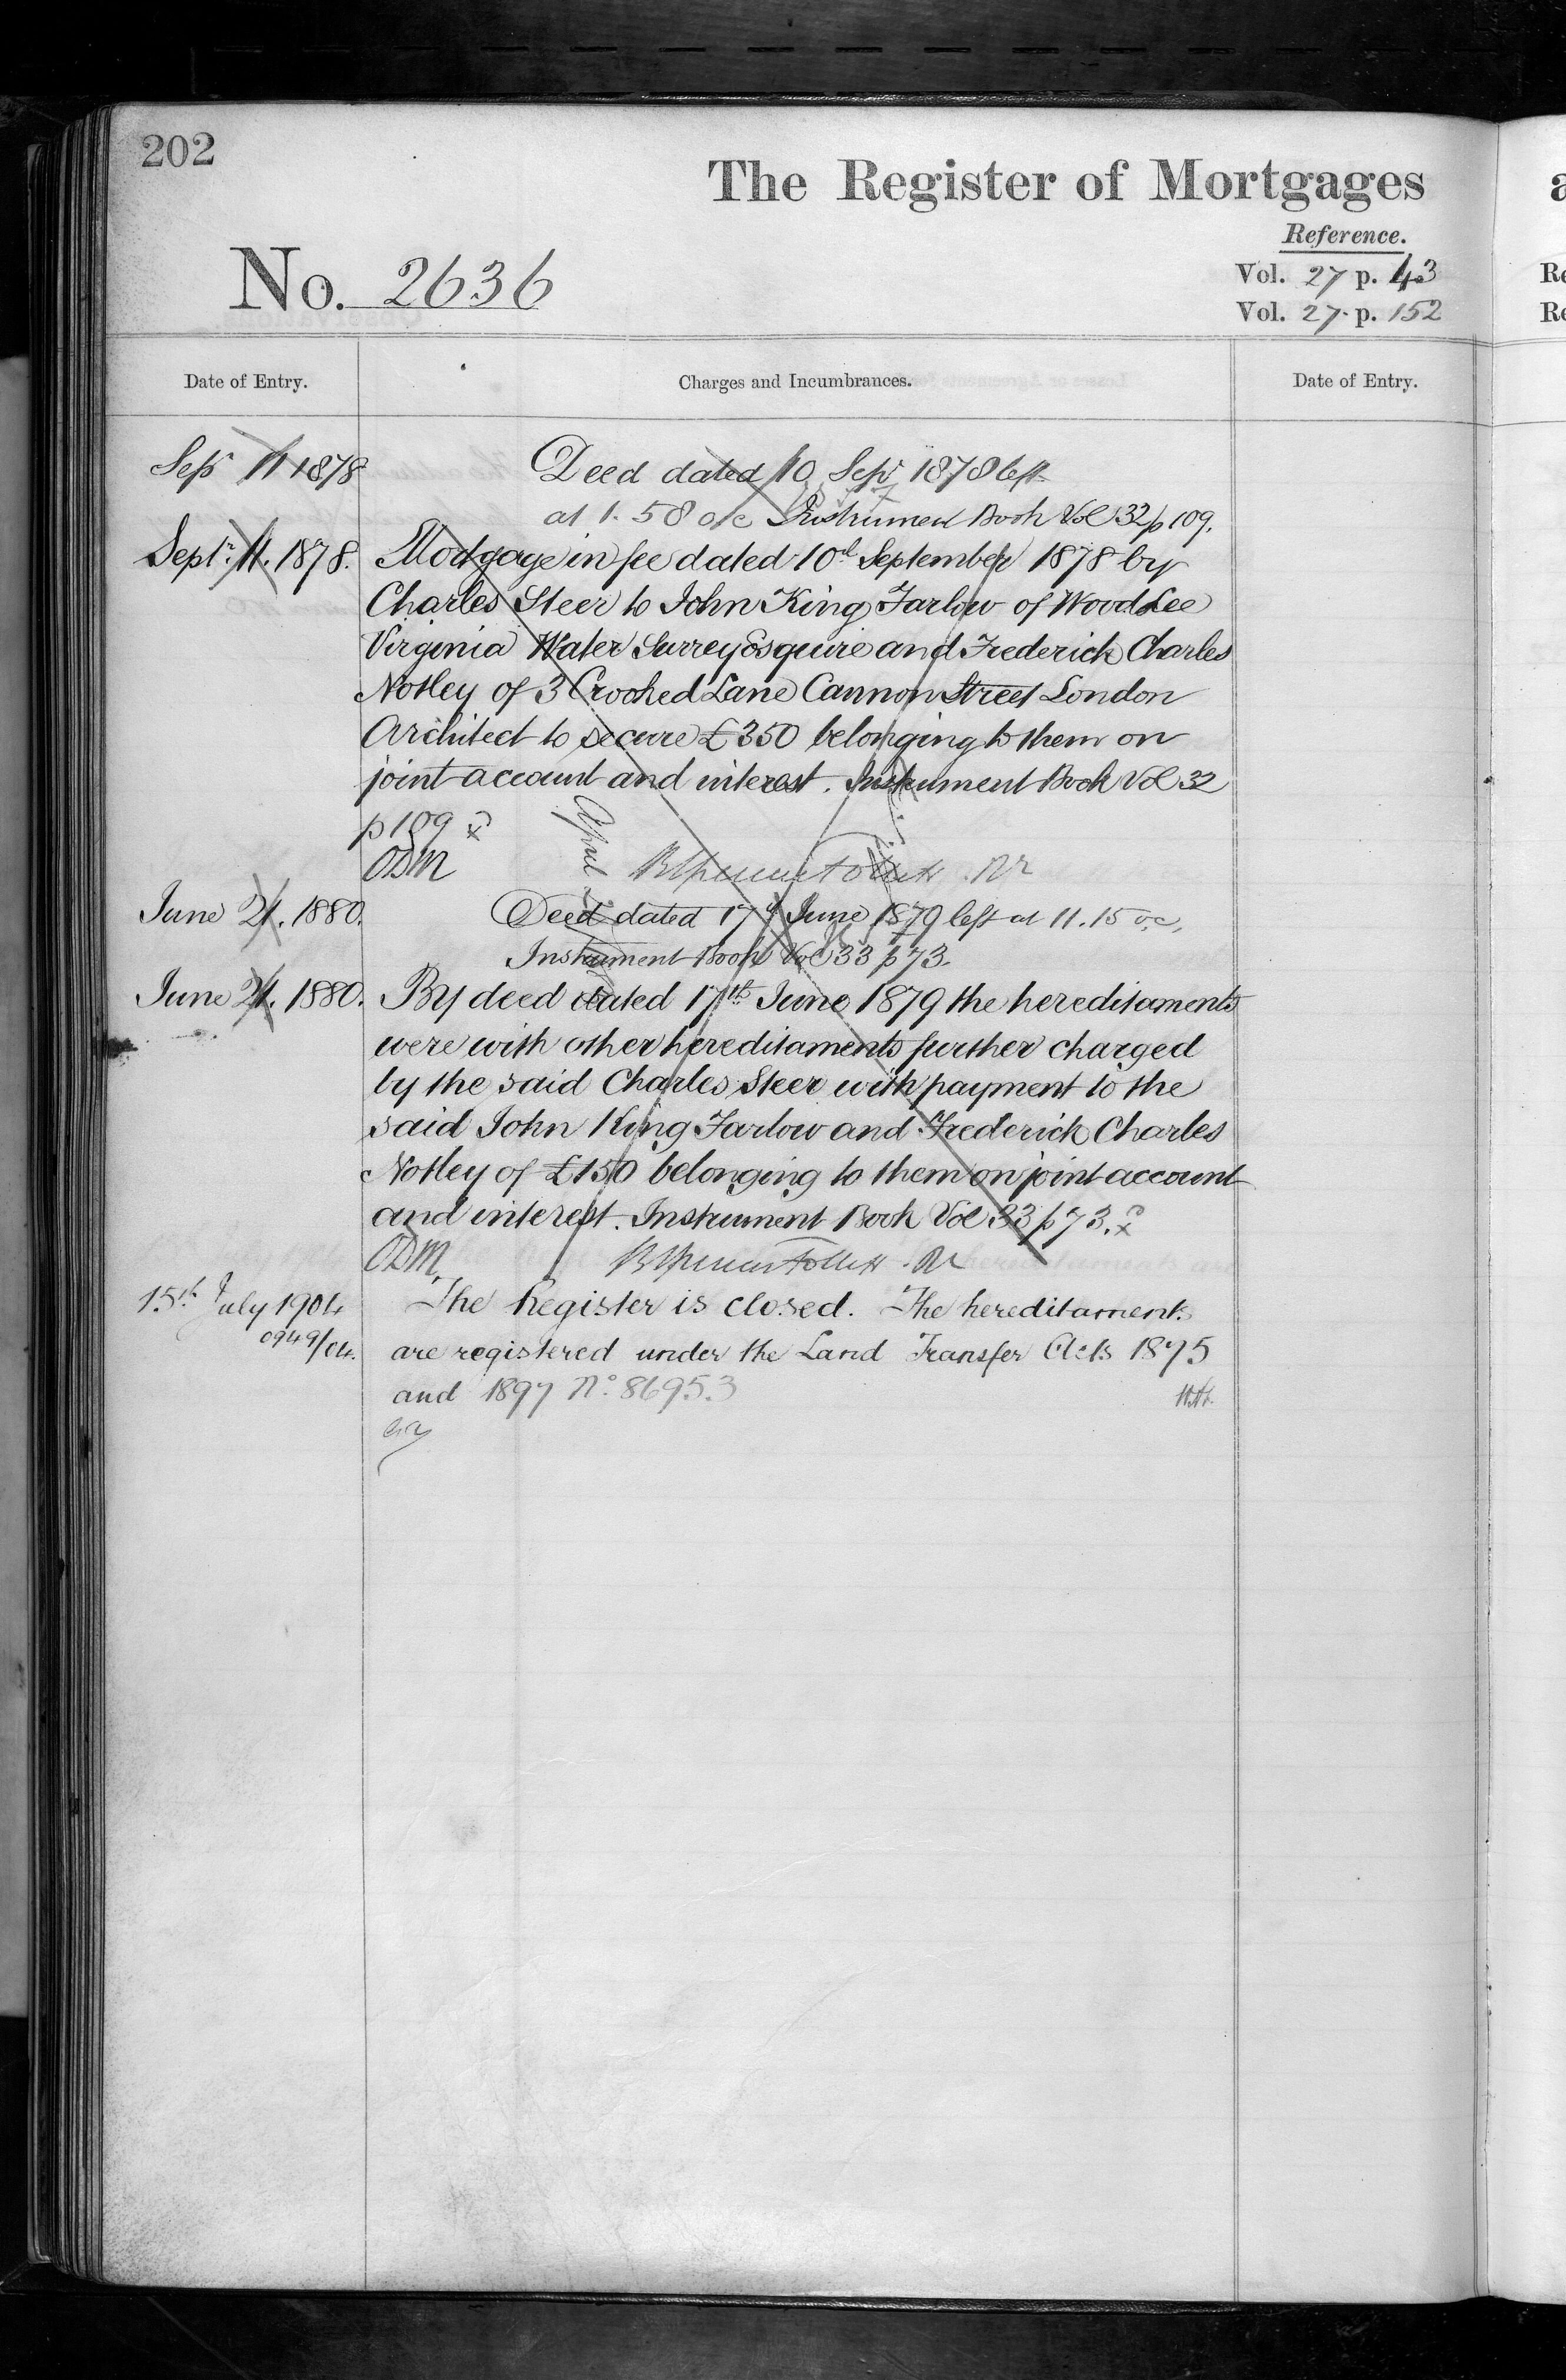 202
The Register of Mortgages
Reference.
No. 2636
Vol. 27 p. 43
Vol. 27 p. 152
Date of Entry.
Charges and Incumbrances.
Date of Entry.
Sepr 11 1878
Deed dated 10 Sepr 1878 left
at 1.58 o/c Instrument Book Vol 32 p 109.
Septr. 11. 1878.
Mortgage in fee dated 10th September 1878 by
Charles Steer to John King Farlow of Wood Lee
Virginia Water Surrey Esquire and Frederick Charles
Notley of 3 Crooked Lane Cannon Street London
Architect to secure £350 belonging to them on
joint account and interest. Instrument Book Vol 32
p 109
ODM
April
June 21. 1880.
Deed dated 17th June 1879 left at 11.15 o.c.
Instrument Book Vol 33 p 73.
June 21. 1880.
By deed dated 17th June 1879 the hereditaments
were with other hereditaments further charged
by the said Charles Steer with payment to the
said John King Farlow and Frederick Charles
Notley of £150 belonging to them on joint account
and interest. Instrument Book Vol 33 p 73.
ODM
15th July 1904
0949/04.
The Register is closed. The hereditaments
are registered under the Land Transfer Acts 1875
and 1897 No. 86953